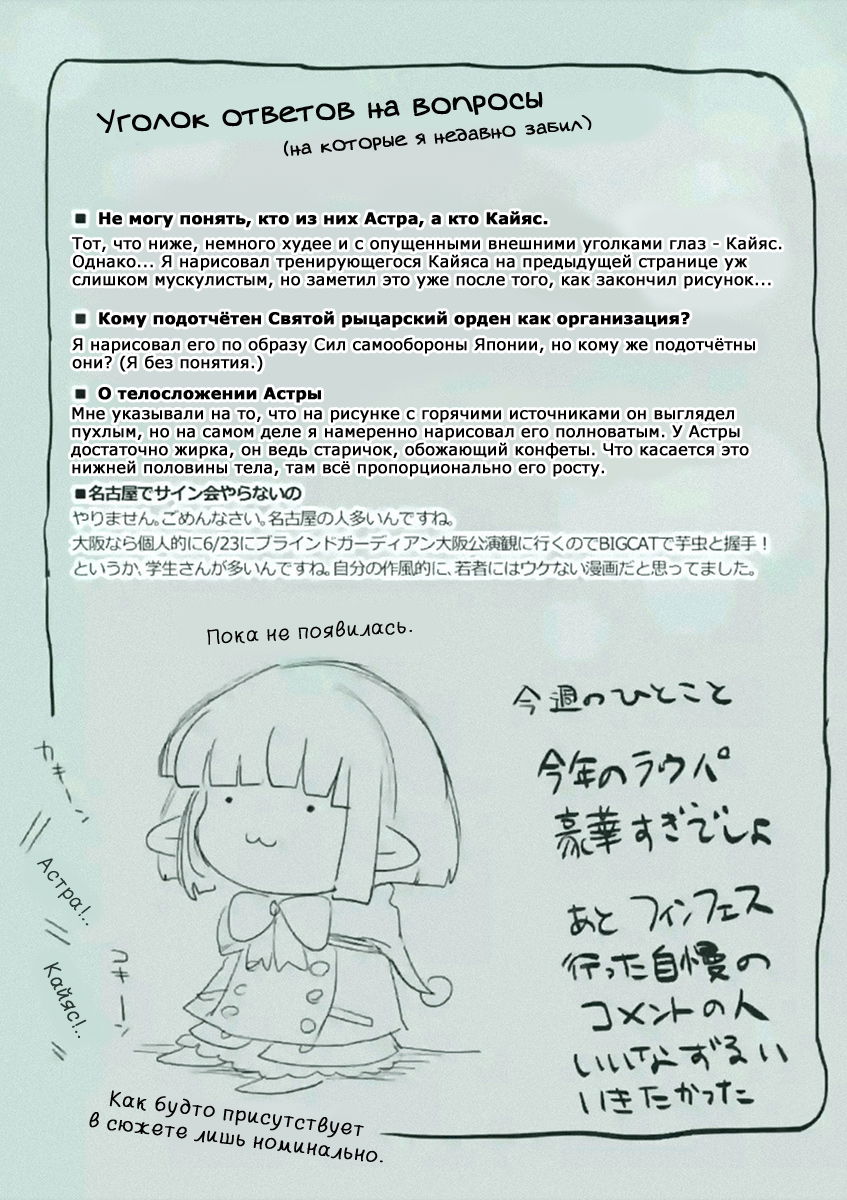 Уголок ответов на вопросы
(на которые я недавно забил)
■ Не могу понять, кто из них Астра, а кто Кайяс.
Тот, что ниже, немного худее и с опущенными внешними уголками глаз - Кайяс.
Однако... Я нарисовал тренирующегося Кайяса на предыдущей странице уж
слишком мускулистым, но заметил это уже после того, как закончил рисунок...
■ Кому подотчётен Святой рыцарский орден как организация?
Я нарисовал его по образу Сил самообороны Японии, но кому же подотчётны
они? (Я без понятия.)
■ О телосложении Астры
Мне указывали на то, что на рисунке с горячими источниками он выглядел
пухлым, но на самом деле я намеренно нарисовал его полноватым. У Астры
достаточно жирка, он ведь старичок, обожающий конфеты. Что касается это
нижней половины тела, там всё пропорционально его росту.
■名古屋でサイン会やらないの
やりません。ごめんなさい。名古屋の人多いんですね。
大阪なら個人的に6/23にブラインドガーディアン大阪公演観に行くのでBIGCATで芋虫と握手！
というか、学生さんが多いんですね。自分の作風的に、若者にはウケない漫画だと思ってました。
Пока не появилась.
今週のひとこと
今年のラウパ
豪華すぎでしょ
あとフィンフェス
行った自慢の
コメントの人
いいなずるい
いきたかった
カキーン
Астра!..
Кайяс!..
コキーン
Как будто присутствует
в сюжете лишь номинально.